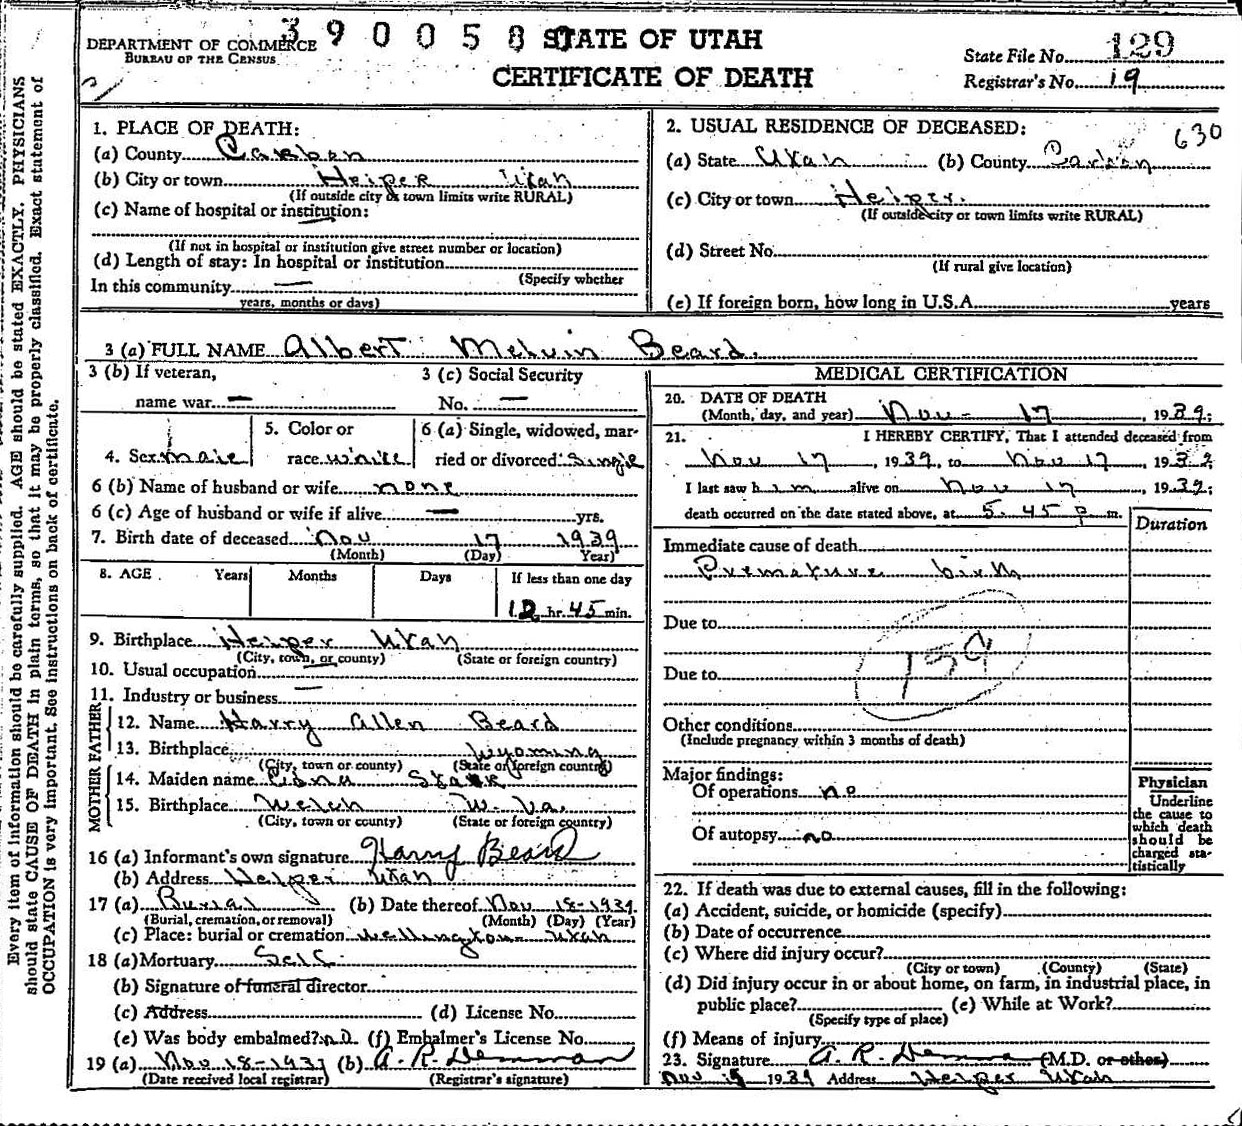 3 9 0 0 5 8 0
DEPARTMENT OF COMMERCE
BUREAU OF THE CENSUS
STATE OF UTAH
CERTIFICATE OF DEATH
State File No. 129
Registrar's No. 19
Every item of information should be carefully supplied. AGE should be stated EXACTLY. PHYSICIANS
should state CAUSE OF DEATH in plain terms, so that it may be properly classified. Exact statement of
OCCUPATION is very important. See instructions on back of certificate.
1. PLACE OF DEATH:
(a) County Carbon
(b) City or town Helper Utah
(If outside city or town limits write RURAL)
(c) Name of hospital or institution:
(If not in hospital or institution give street number or location)
(d) Length of stay: In hospital or institution
(Specify whether
In this community —
years, months or days)
2. USUAL RESIDENCE OF DECEASED:
630
(a) State Utah (b) County Carbon
(c) City or town Helper.
(If outside city or town limits write RURAL)
(d) Street No.
(If rural give location)
(e) If foreign born, how long in U.S.A. years
3 (a) FULL NAME Albert Melvin Beard.
3 (b) If veteran,
name war —
3 (c) Social Security
No. —
4. Sex male
5. Color or
race white
6 (a) Single, widowed, mar-
ried or divorced Single
6 (b) Name of husband or wife none
6 (c) Age of husband or wife if alive — yrs.
7. Birth date of deceased Nov 17 1939
(Month) (Day) Year)
8. AGE Years Months Days If less than one day
12 hr. 45 min.
9. Birthplace Helper Utah
(City, town, or county) (State or foreign country)
10. Usual occupation
11. Industry or business —
FATHER
12. Name Harry Allen Beard
13. Birthplace Wyoming
(City, town or county) (State or foreign country)
MOTHER
14. Maiden name
15. Birthplace Welch W. Va.
(City, town or county) (State or foreign country)
16 (a) Informant's own signature Harry Beard
(b) Address Helper Utah
17 (a) Burial (b) Date thereof Nov 18-1939
(Burial, cremation, or removal) (Month) (Day) (Year)
(c) Place: burial or cremation Wellington Utah
18 (a) Mortuary Self
(b) Signature of funeral director
(c) Address (d) License No.
(e) Was body embalmed? no. (f) Embalmer's License No.
19 (a) Nov 18-1939 (b) A. R. Demman
(Date received local registrar) (Registrar's signature)
MEDICAL CERTIFICATION
20. DATE OF DEATH
(Month, day, and year) Nov - 17, 1939;
21. I HEREBY CERTIFY, That I attended deceased from
Nov 17, 1939, to Nov 17, 1939;
I last saw him alive on Nov 17, 1939;
death occurred on the date stated above, at 5.45 p m.
Duration
Immediate cause of death
Premature birth
Due to
159
Due to
Other conditions
(Include pregnancy within 3 months of death)
Major findings:
Of operations no
Of autopsy no
Physician
Underline
the cause to
which death
should be
charged sta-
tistically
22. If death was due to external causes, fill in the following:
(a) Accident, suicide, or homicide (specify)
(b) Date of occurrence
(c) Where did injury occur?
(City or town) (County) (State)
(d) Did injury occur in or about home, on farm, in industrial place, in
public place? (e) While at Work?
(Specify type of place)
(f) Means of injury
23. Signature A. R. Demman (M.D. or other)
Nov 1939 Address Helper Utah